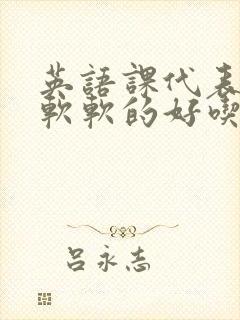 英語課代表
軟軟的好喫
呂永志